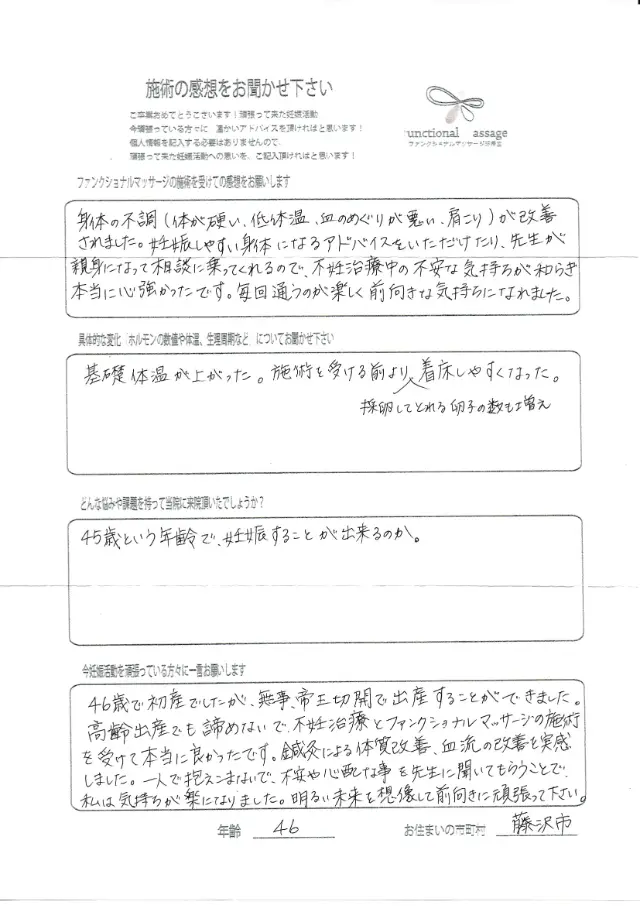 施術の感想をお聞かせ下さい
ご卒業おめでとうございます！頑張って来た妊娠活動
今頑張っている方々に 温かいアドバイスを頂ければと思います！
個人情報を記入する必要はありませんので、
頑張って来た妊娠活動への思いを、ご記入頂ければと思います！
unctional assage
ファンクショナルマッサージ
ファンクショナルマッサージの施術を受けての感想をお願いします
身体の不調(体が硬い、低体温、血のめぐりが悪い、肩こり)が改善
されました。妊娠しやすい身体になるアドバイスをいただけたり、先生が
親身になって相談に乗ってくれるので、不妊治療中の不安な気持ちが和らぎ
本当に心強かったです。毎回通うのが楽しく前向きな気持ちになれました。
具体的な変化「ホルモンの数値や体温、生理周期など」についてお聞かせ下さい
基礎体温が上がった。施術を受ける前より、着床しやすくなった。
採卵してとれる卵子の数も増え
どんな悩みや課題を持って当院に来院頂いたでしょうか？
45歳という年齢で、妊娠することが出来るのか。
今妊娠活動を頑張っている方々に一言お願いします
46歳で初産でしたが、無事、帝王切開で出産することができました。
高齢出産でも諦めないで、不妊治療とファンクショナルマッサージの施術
を受けて本当に良かったです。鍼灸による体質改善、血流の改善を実感
しました。一人で抱えこまないで、不安や心配な事を先生に聞いてもらうことで、
私は気持ちが楽になりました。明るい未来を想像して前向きに頑張って下さい。
年齢 46 お住まいの市町村 藤沢市